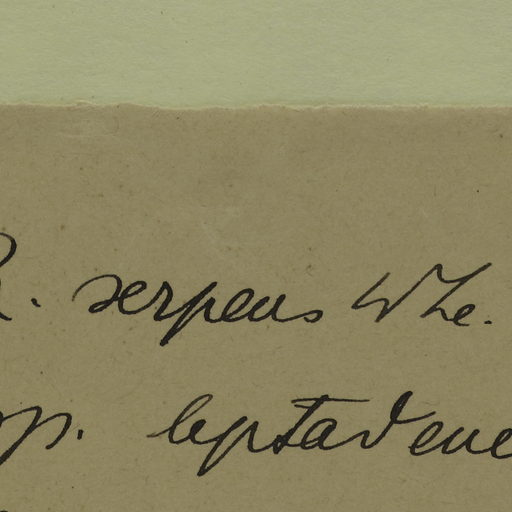 R. serpens Whe.
sp. leptadene